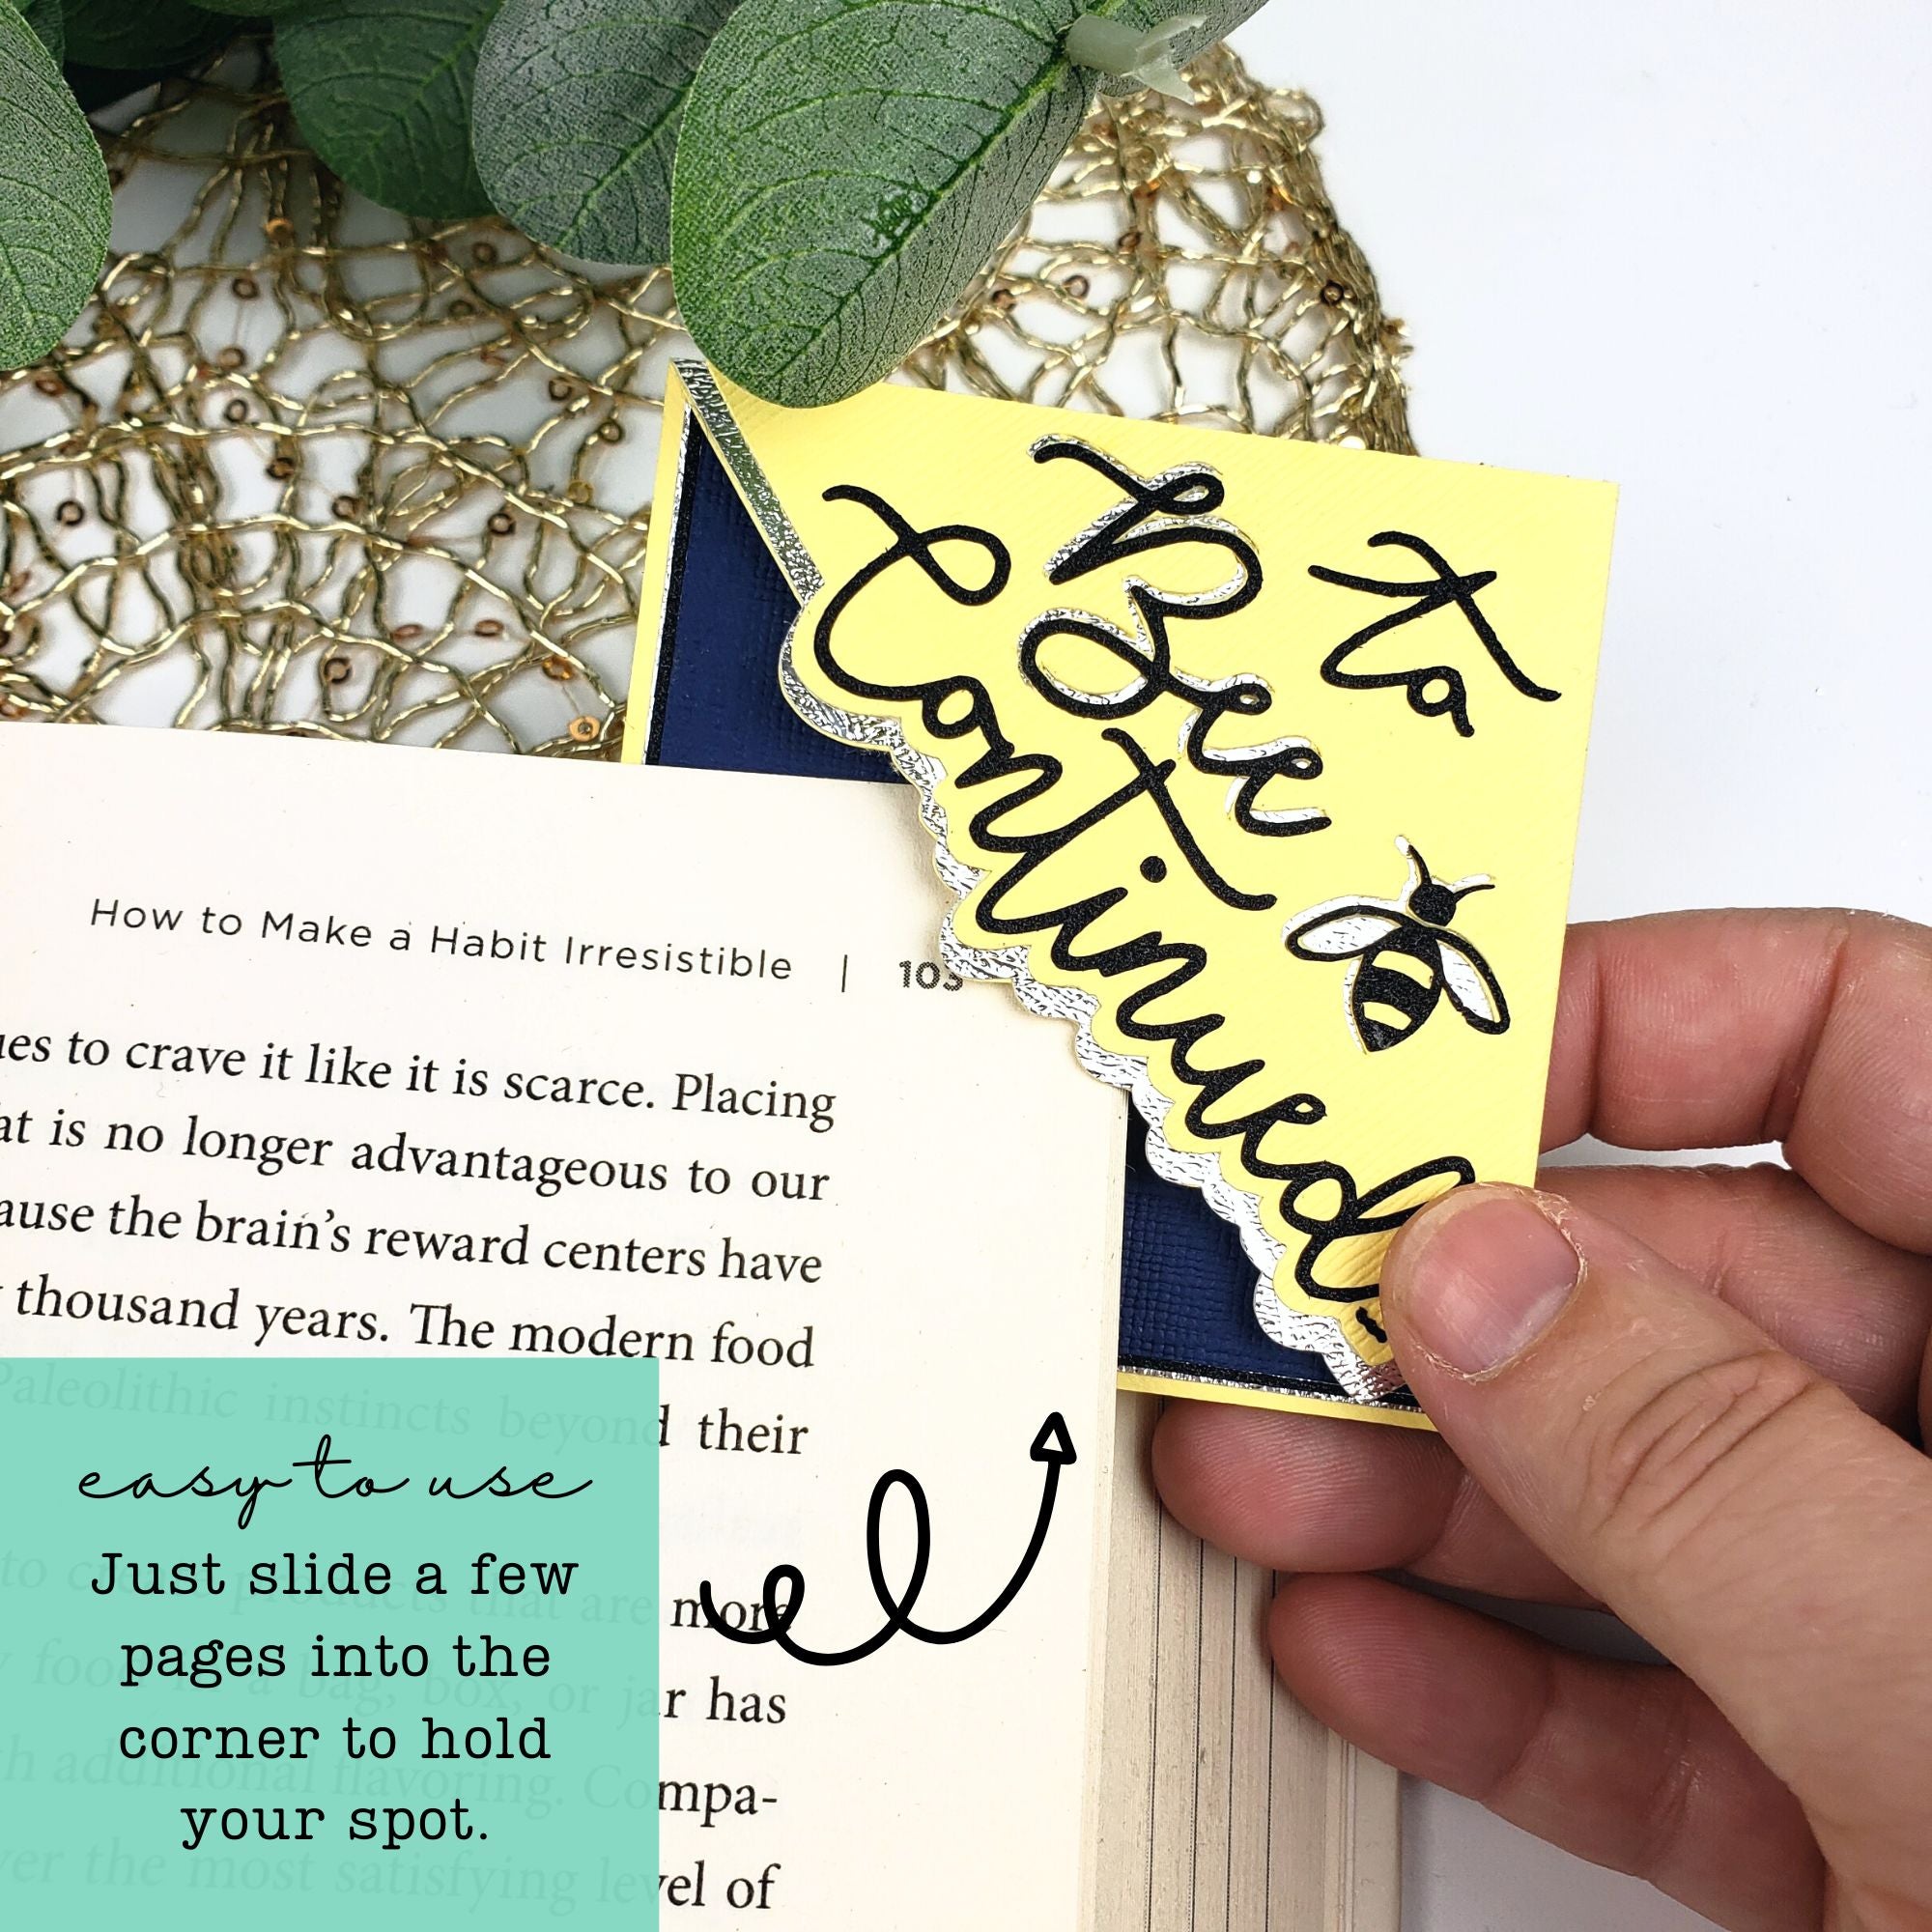 To
Bee
Continued
How to Make a Habit Irresistible | 103
ues to crave it like it is scarce. Placing
at is no longer advantageous to our
ause the brain's reward centers have
thousand years. The modern food
Paleolithic instincts beyond their
to create products that are more
food in a bag, box, or jar has
h additional flavoring. Compa-
ver the most satisfying level of
easy to use
Just slide a few
pages into the
corner to hold
your spot.